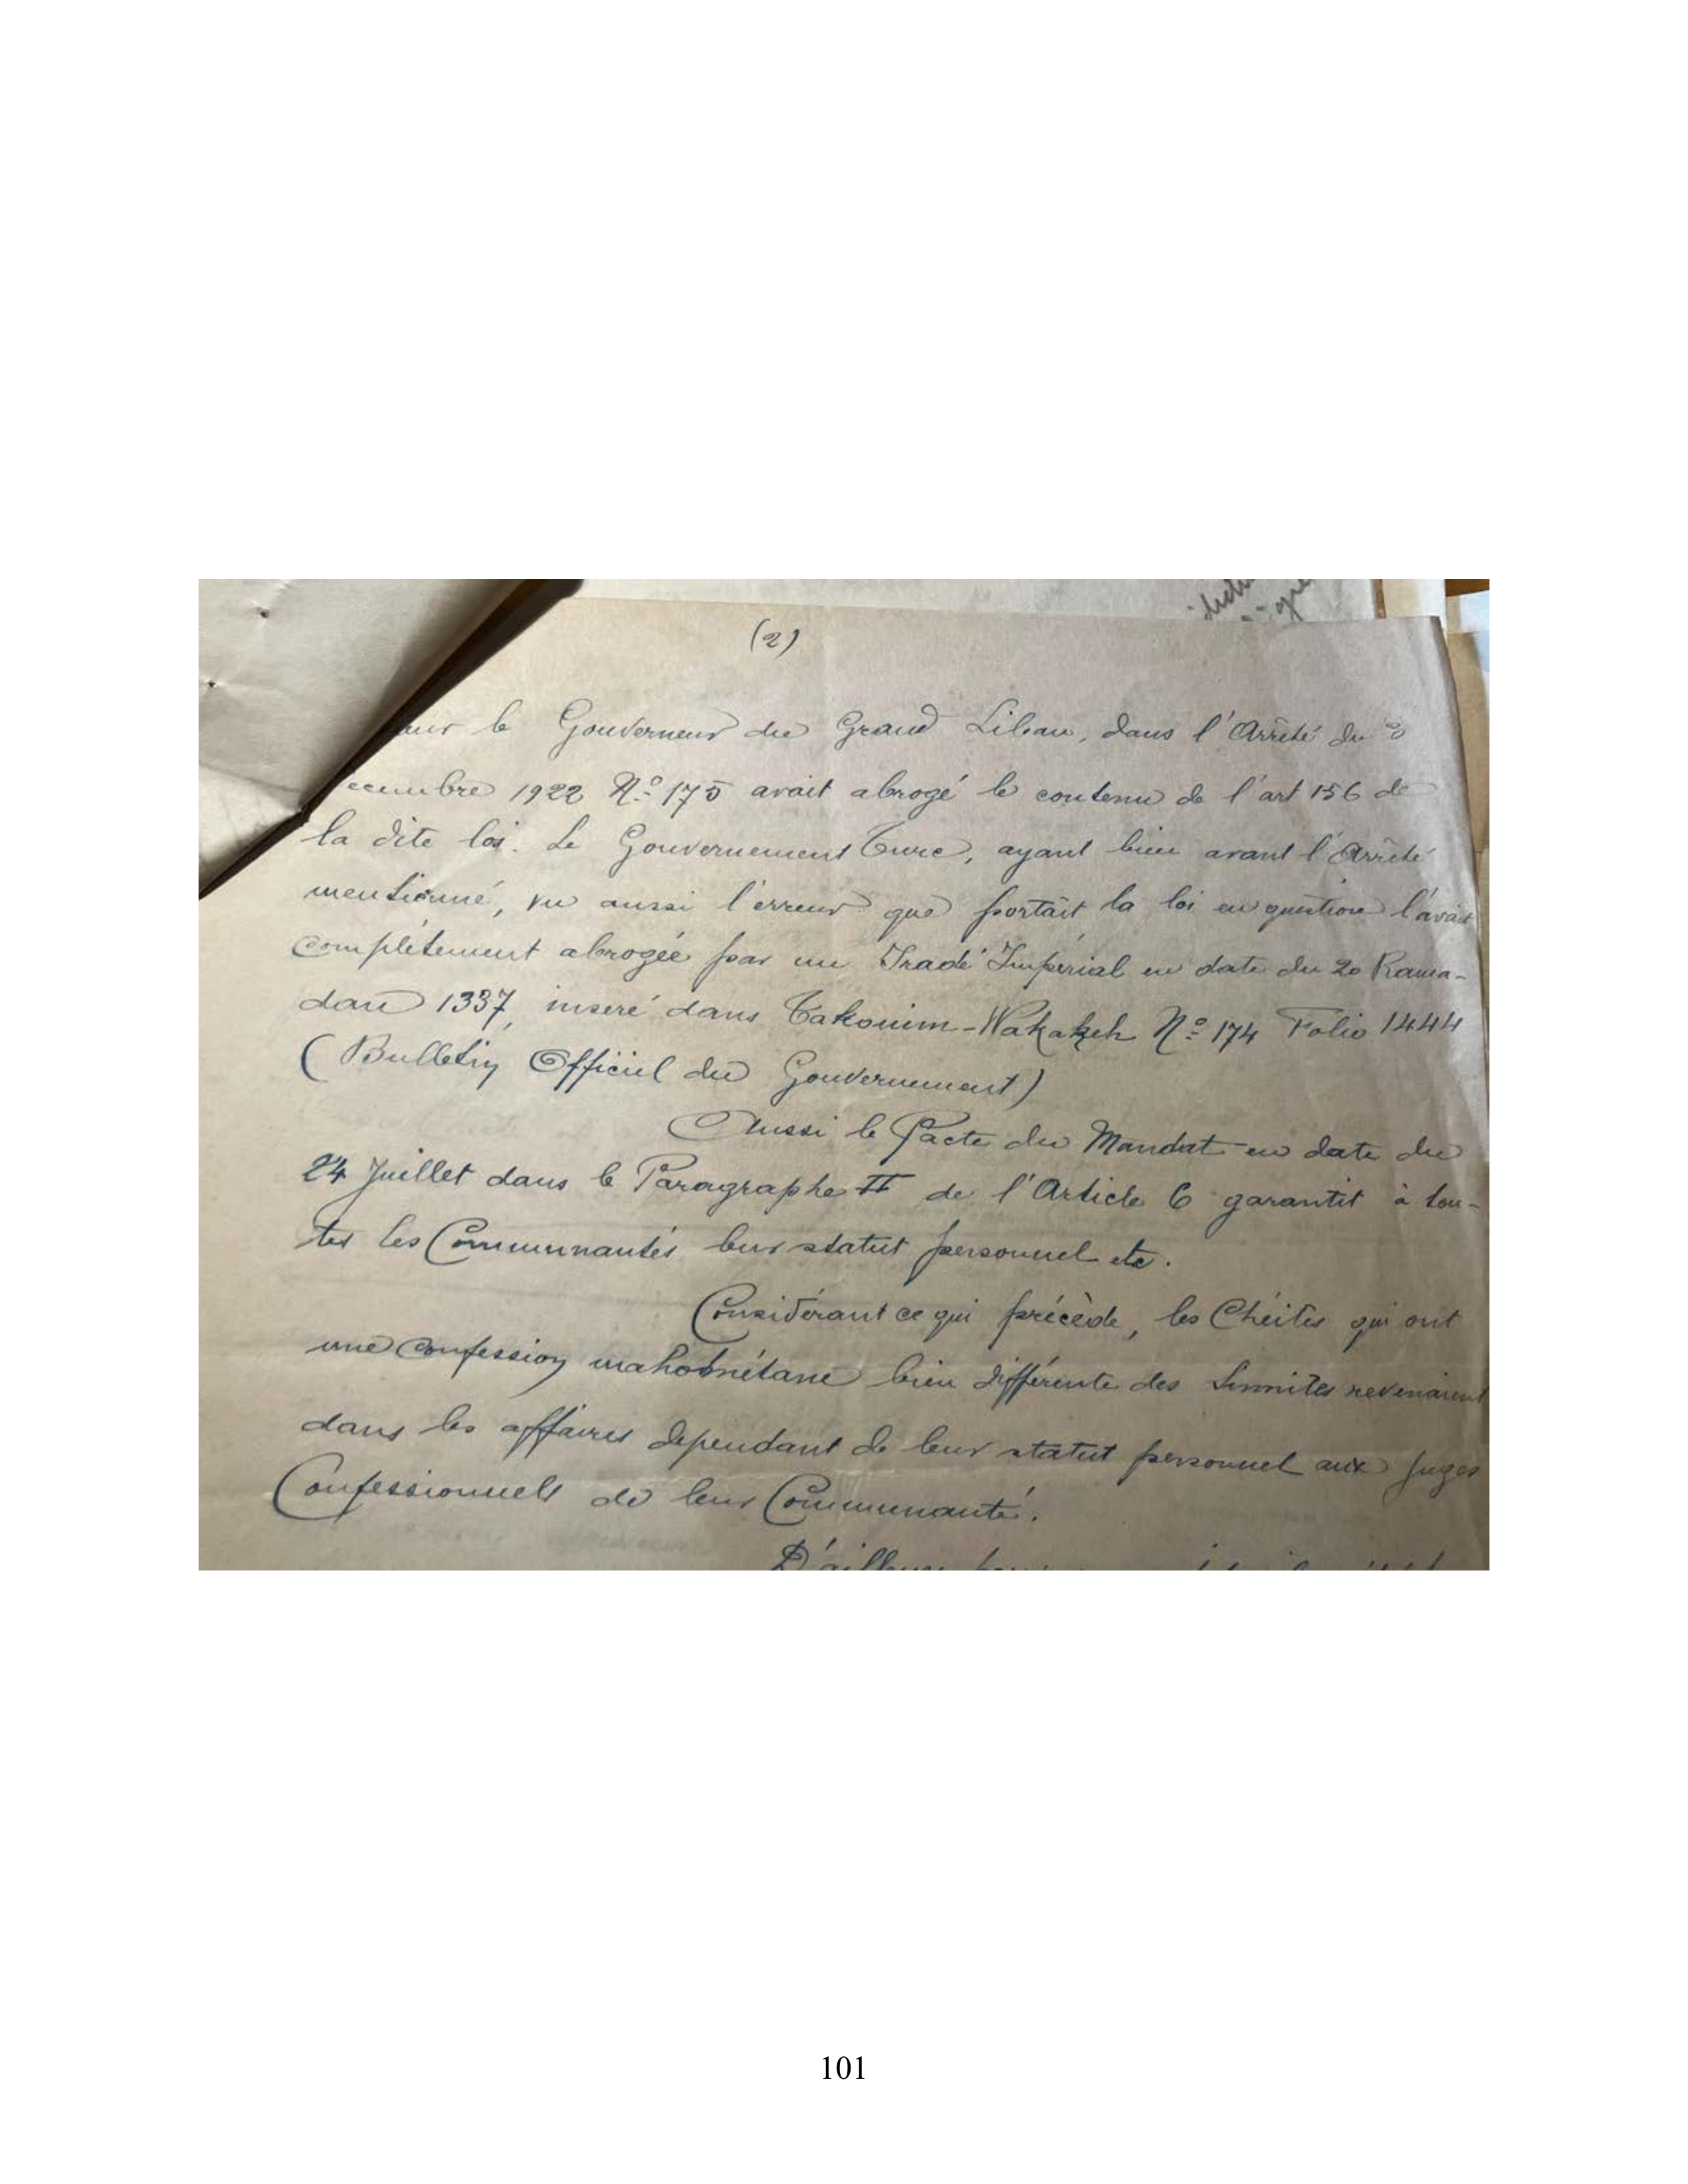 (2)
le Gouverneur du Grand Liban, dans l'Arrêté du
1922 N:º 175 avait abrogé le contenu de l'art 156 de
la dite loi. Le Gouvernement Turc, ayant bien avant l'Arrêté
mentionné, vu aussi l'erreur que portait la loi en question l'avait
complétement abrogée par un Iradé Impérial en date du 20 Rama-
dan 1337, inseré dans Takouim-Wakakeh N:º 174 Folio 1444
(Bulletin Officiel du Gouvernement)
Aussi le Pacte du Mandat en date du
24 Juillet dans le Paragraphe II de l'Article 6 garantit à tou-
tes les Communautés leur statut personnel etc.
Considérant ce qui précède, les Chéites qui ont
une confession mahométane bien différente des Sunnites revenaient
dans les affaires dépendant de leur statut personnel aux juges
Confessionnels de leur Communauté.
D'ailleurs
101